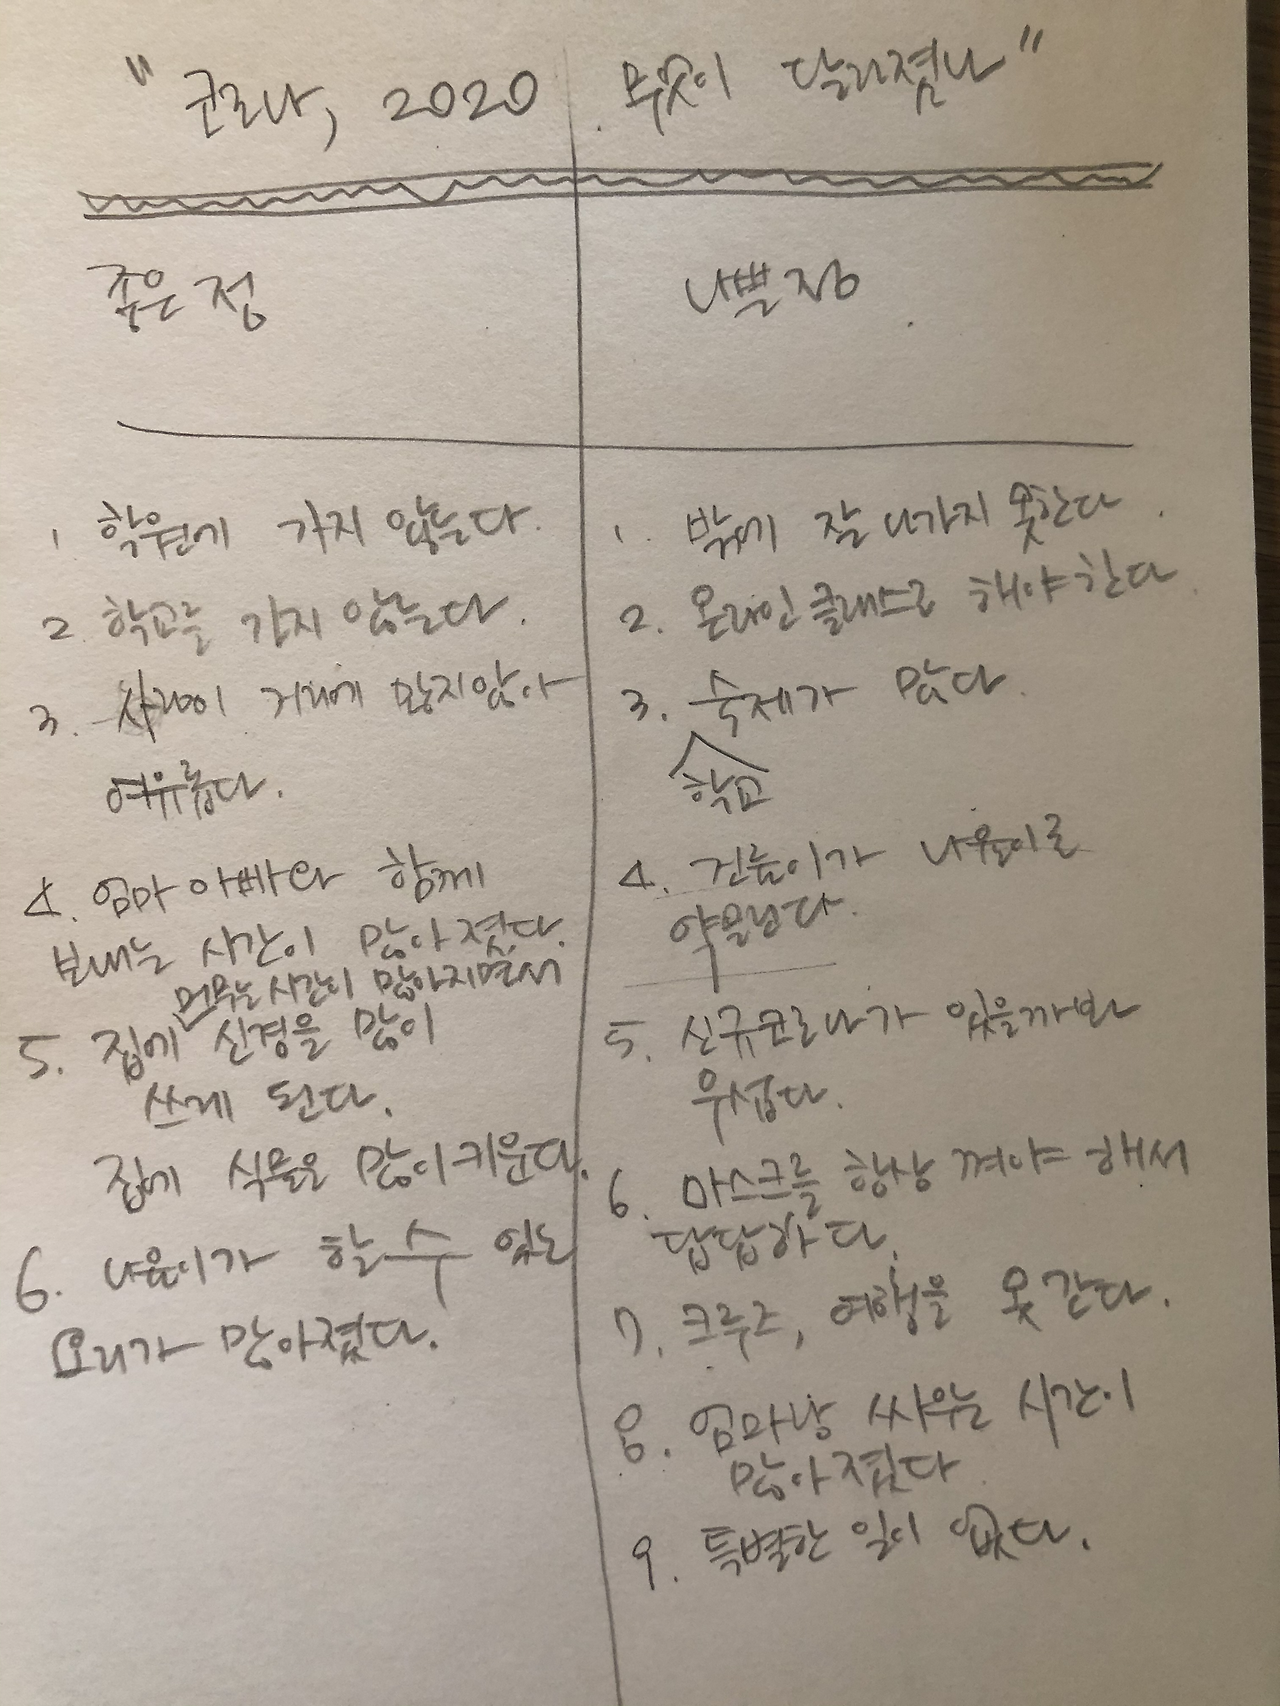 "코로나, 2020 무엇이 달라졌나"
좋은 점
1. 학원에 가지 않는다.
2. 학교를 가지 않는다.
3. 사람이 거리에 많지않아
여유롭다.
4. 엄마 아빠와 함께
보내는 시간이 많아졌다.
머무는 시간이 많아지면서
5. 집에 신경을 많이
쓰게 된다.
집에 식물을 많이 키운다.
6. 나윤이가 할 수 있는
요리가 많아졌다.
나쁜점
1. 밖에 잘 나가지 못한다.
2. 온라인 클래스로 해야 한다.
3. 숙제가 많다.
학교
4. 이가 나윤이로
5. 신규코로나가 있을까봐
무섭다.
6. 마스크를 항상 껴야 해서
답답하다.
7. 크루즈, 여행을 못 간다.
8. 엄마랑 싸우는 시간이
많아졌다
9. 특별한 일이 없다.